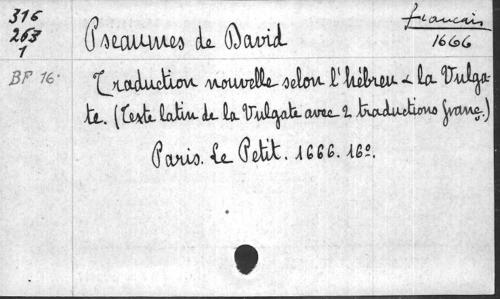 316
263
1
BF 16.
Français
1666
Pseaumes de David
Traduction nouvelle selon l'hébreu & la Vulga-
te. (Texte latin de la Vulgate avec 2 traductions franç.)
Paris. Le Petit. 1666. 16º.